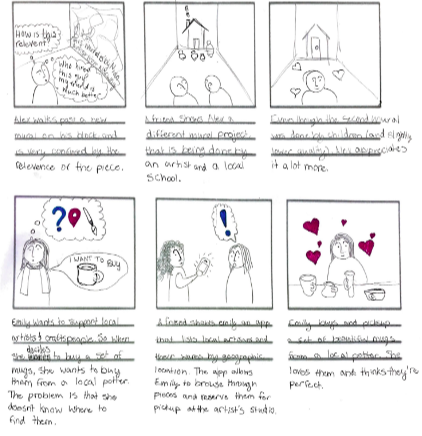 How is this
relevant?
Who hired
this guy
my friend is
much better.
Alex walks past a new
mural on his block and
is very confused by the
relevance of the piece.
A friend shows Alex a
different mural project
that is being done by
an artist and a local
school.
Even though the second mural
was done by children (and slightly
lower quality), Alex appreciates
it a lot more.
I WANT TO BUY
Emily wants to support local
artists & craftspeople. So when
decides
she wants to buy a set of
mugs, she wants to buy
them from a local potter.
The problem is that she
doesnt know where to
find them.
A friend shares Emily an app
that lists local artists and
their wares by geographic
location. The app allows
Emily to browse through
pieces and reserve them for
pickup at the artist's studio.
Emily buys and picks up
a set of beautiful mugs
from a local potter. She
loves them and thinks they're
perfect.